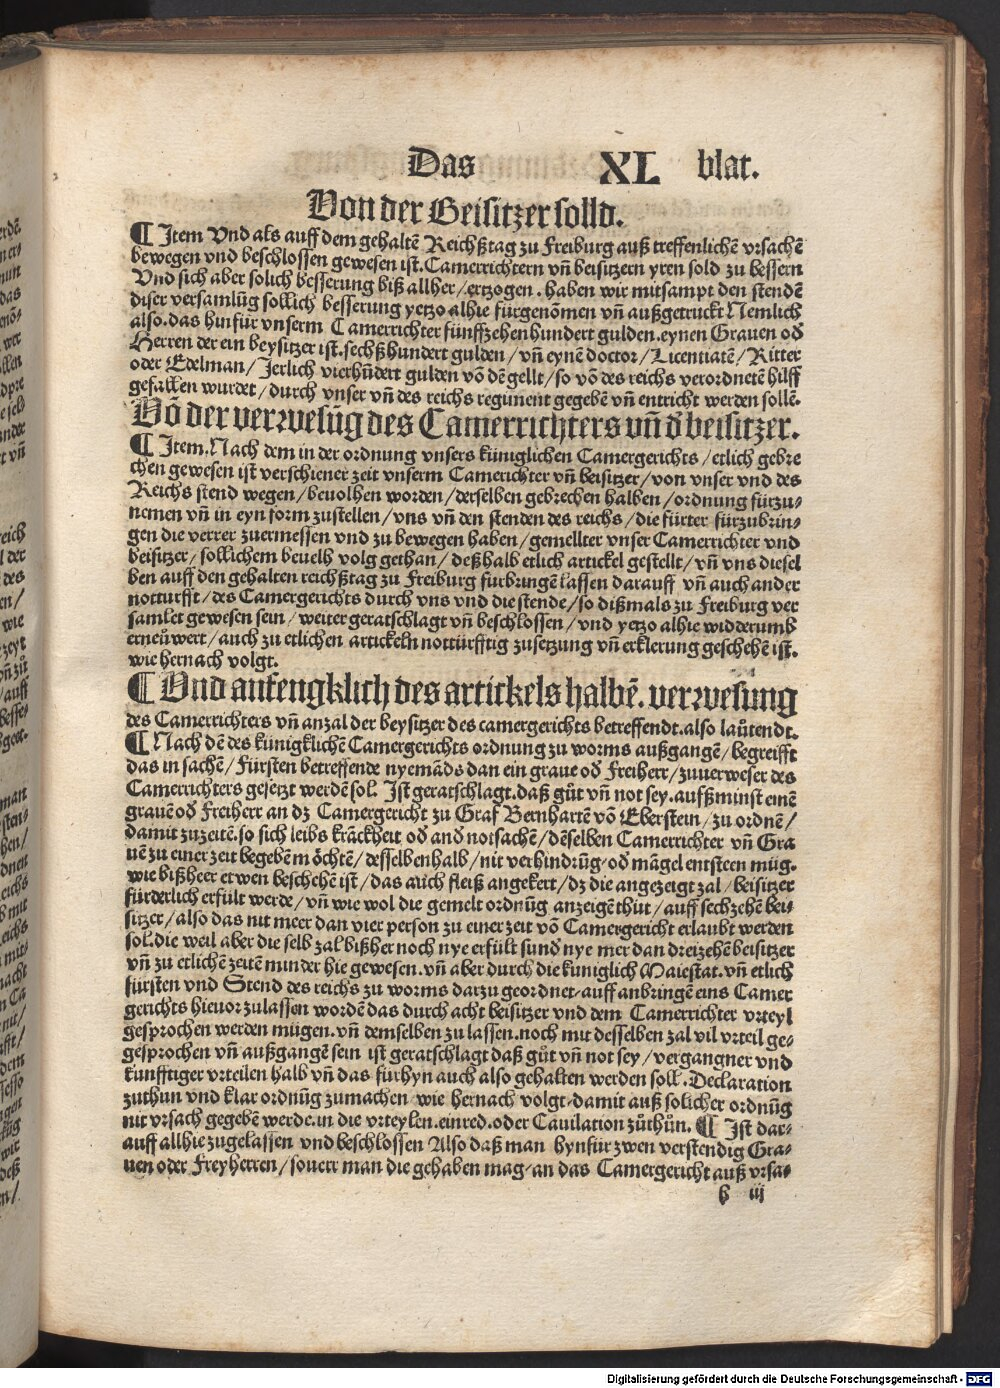 Das XL blat.
Von der Beisitzer solld.
¶ Item Vnd als auff dem gehaltē Reichßtag zu Freiburg auß treffenlichē vrsachē
bewegen vnd beschlossen gewesen ist. Camerrichtern vñ beisitzern yren sold zu bessern
Vnd sich aber solich besserung biß allher / ertzogen. haben wir mitsampt den stendē
diser versamlūg sollich besserung yetzo alhie fürgenōmen vñ außgetruckt Nemlich
also. das hinfür vnserm Camerrichter fünffzehenhundert gulden. eynen Grauen od̄
Herren der ein beysitzer ist. sechßhundert gulden / vñ eynē doctor / Licentiatē / Ritter
oder Edelman / Jerlich vierhūdert gulden vō dē gellt / so vō des reichs verordnetē hilff
gefallen wurdet / durch vnser vñ des reichs regiment gegebē vñ entricht werden sollē.
Vō der verwesūg des Camerrichters vñ d̄ beisitzer.
¶ Item. Nach dem in der ordnung vnsers küniglichen Camergerichts / etlich gebre
chen gewesen ist verschiener zeit vnserm Camerichter vñ beisitzer / von vnser vnd des
Reichs stend wegen / beuolhen worden / derselben gebrechen halben / ordnung fürzu-
nemen vñ in eyn form zustellen / vns vñ den stenden des reichs / die fürter fürzubrin-
gen die verrer zuermessen vnd zu bewegen haben / gemellter vnser Camerrichter vnd
beisitzer / sollichem beuelh volg gethan / deßhalb etlich artickel gestellt / vñ vns diesel
ben auff den gehalten reichßtag zu Freiburg fürbringē lassen darauff vñ auch ander
notturfft / des Camergerichts durch vns vnd die stende / so dißmals zu Freiburg ver
samlet gewesen sein / weiter geratschlagt vñ beschlossen / vnd yetzo alhie widderumb
erneüwert / auch zu etlichen artickeln nottürfftig zusetzung vñ erklerung geschehē ist.
wie hernach volgt.
¶ Vnd anfengklich des artickels halbē. verwesung
des Camerrichters vñ anzal der beysitzer des camergerichts betreffendt. also laůtendt.
¶ Nach dē des künigklichē Camergerichts ordnung zu worms außgangē / begreifft
das in sachē / Fürsten betreffende nyemāds dan ein graue od̄ Freiherr / zuuerweser des
Camerrichters gesetzt werdē sol. Ist geratschlagt. daß gůt vñ not sey. auffs minst einē
grauē od̄ Freiherr an dz Camergericht zu Graf Bernhartē vō Eberstein / zu ordnē /
damit zuzeitē. so sich leibs krāckheit od̄ and̄ notsachē / dēselben Camerrichter vñ Gra
uē zu einer zeit begebē möchtē / desselbenhalb / nit verhindrūg / od̄ māgel entsteen müg.
wie bißheer etwen beschehē ist / das auch fleiß angekert / dz die angezeigt zal / beisitzer
fürderlich erfült werde / vñ wie wol die gemelt ordnūg anzeigē thůt / auff sechzehē bei-
sitzer / also das nit meer dan vier person zu einer zeit vō Camergericht erlaubt werden
sol. die weil aber die selb zal bißher noch nye erfült sund nye mer dan dreizehē beisitzer
vñ zu etlichē zeitē minder hie gewesen. vñ aber durch die küniglich Maiestat. vñ etlich
fürsten vnd Stend des reichs zu worms darzu geordnet. auff anbringē eins Camer
gerichts hieuor zulassen wordē das durch acht beisitzer vnd dem Camerrichter vrteyl
gesprochen werden mügen. vñ demselben zu lassen. noch mit desselben zal vil vrteil ge-
gesprochen vñ außgangē sein ist geratschlagt daß gůt vñ not sey / vergangner vnd
künfftiger vrteilen halb vñ das fürhyn auch also gehalten werden soll. Declaration
zuthun vnd klar ordnūg zumachen wie hernach volgt. damit auß solicher ordnūg
nit vrsach gegebē werde. in die vrteylen. einred. oder Cauilation zůthůn. ¶ Ist dar-
auff allhie zugelassen vnd beschlossen Also daß man hynfür zwen verstendig Gra-
uen oder Freyherren / souerr man die gehaben mag. an das Camergericht auß vrsa-
h iij
Digitalisierung gefördert durch die Deutsche Forschungsgemeinschaft - DFG